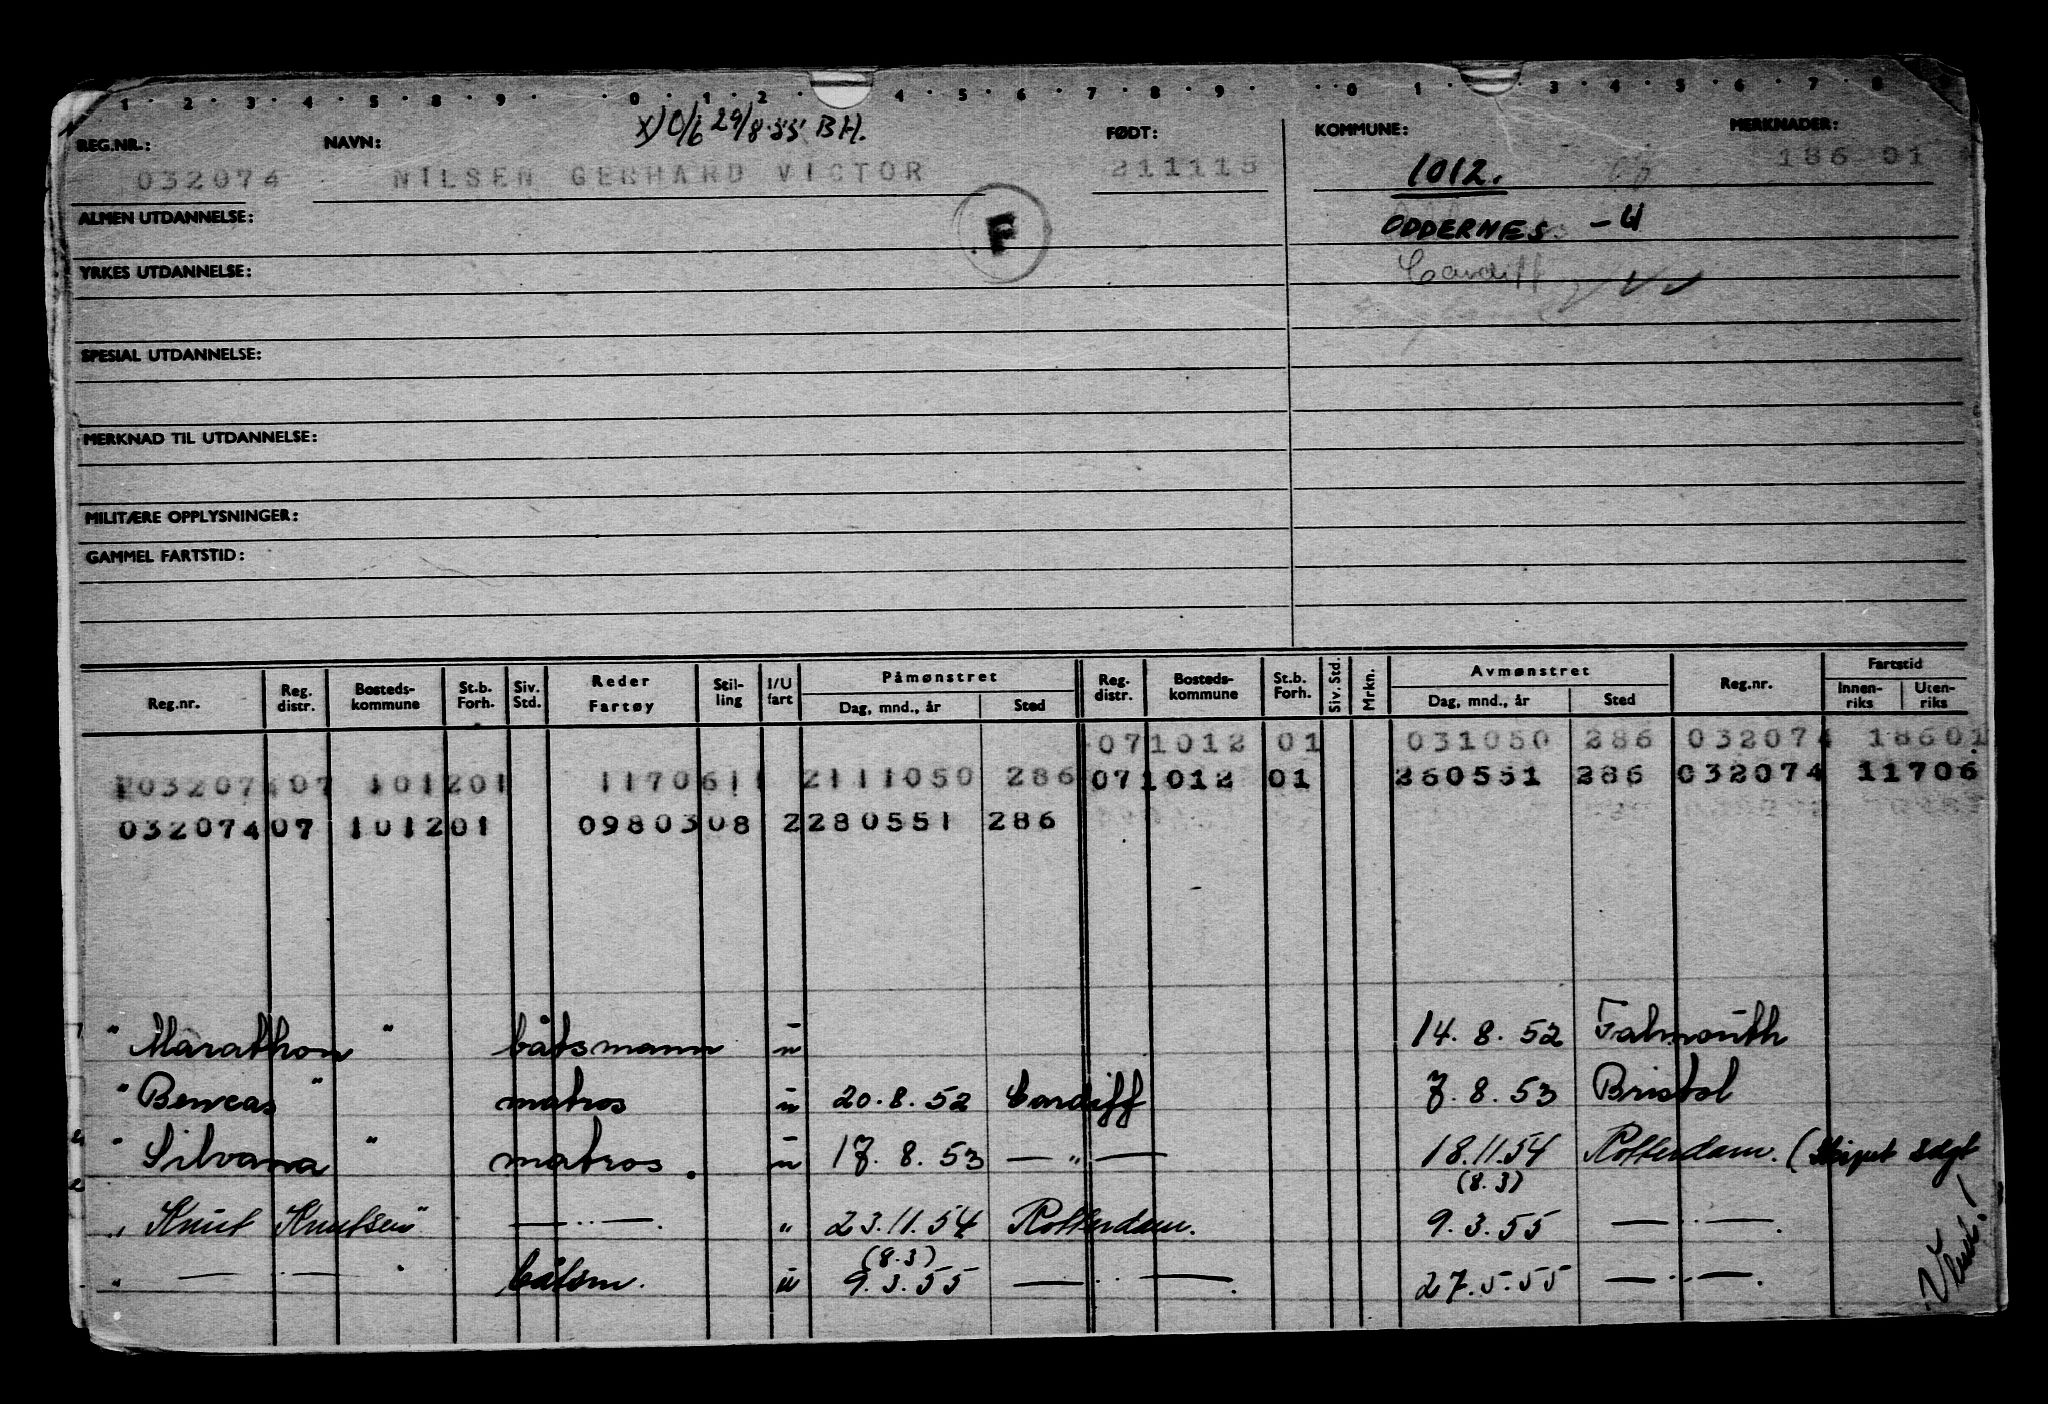 1 2 3 4 5 8 9 0 1 2 4 5 6 7 8 9 0 1 3 4 5 6 7 8
x) O/b 29/8-55 B H.
REG.NR.: NAVN: FØDT: KOMMUNE: MERKNADER:
032074 NILSEN GERHARD VICTOR 211115 1012. 186 01
ALMEN UTDANNELSE: F ODDERNES -4
YRKES UTDANNELSE: Cardiff
SPESIAL UTDANNELSE:
MERKNAD TIL UTDANNELSE:
MILITÆRE OPPLYSNINGER:
GAMMEL FARTSTID:
Reg.nr. Reg. distr. Bosteds-kommune St.b. Forh. Siv. Std. Reder Fartøy Stil-ling I/U fart Påmønstret Dag, mnd., år Sted Reg. distr. Bosteds-kommune St.b. Forh. Siv. Std. Mrkn. Avmønstret Dag, mnd., år Sted Reg.nr. Fartstid Innen-riks Uten-riks
071012 01 031050 286 032074 18601
032074 07 101201 11706 11 2111050 286 071012 01 260551 286 032074 11706
032074 07 101201 09803 08 2 280551 286
" Marathon " båtsmann u 14. 8. 52 Falmouth
" Bencas " matros u 20. 8. 52 Cardiff 7. 8. 53 Bristol
" Silvana " matros. u 17. 8. 53 — " — 18.11.54 Rotterdam. (Skipet solgt
(8.3)
" Knut Knutsen" — " —. " 23.11.54 Rotterdam. 9. 3. 55 — " —.
(8.3)
" — " — " båtsm. u 9. 3. 55 — " —. 27. 5. 55 — " —.